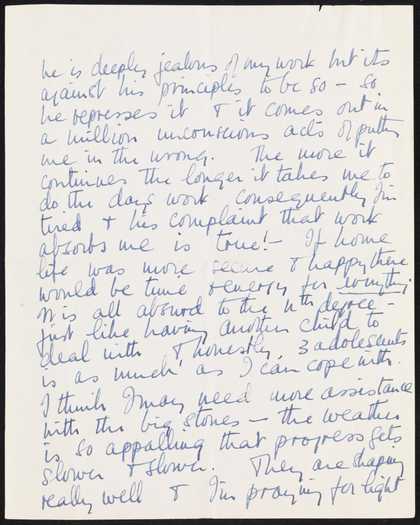 he is deeply jealous of my work but its
against his principles to be so – so
he represses it & it comes out in
a million unconscious acts of putting
me in the wrong. The more it
continues the longer it takes me to
do the days work consequently I'm
tired & his complaint that work
absorbs me is true! – If home
life was more secure & happy there
would be time & energy for everything
It is all absurd to the nth degree –
just like having another child to
deal with & honestly, 3 adolescents
is as much as I can cope with.
I think I may need more assistance
with the big stones – the weather
is so appalling that progress gets
slower & slower. They are shaping
really well & I'm praying for light